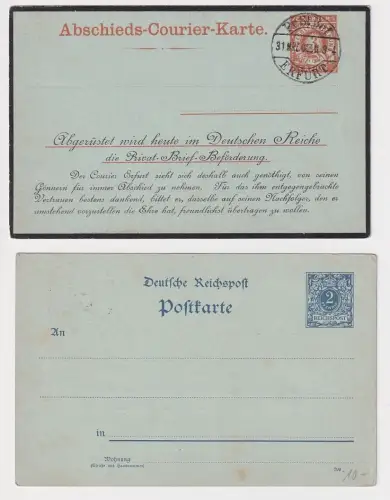 Abschieds-Courier-Karte.
ERFURT
Abgerüstet wird heute im Deutschen Reiche
die Privat-Brief-Beförderung.
Der Courier Erfurt zieht sich deshalb auch genöthigt, von seinen
Gönnern für immer Abschied zu nehmen. Für das ihm entgegengebrachte
Vertrauen bestens dankend, bittet er, dasselbe auf seinen Nachfolger, den er
umstehend vorzustellen die Ehre hat, freundlichst übertragen zu wollen.
Deutsche Reichspost
Postkarte
2
REICHSPOST
An
in
Wohnung